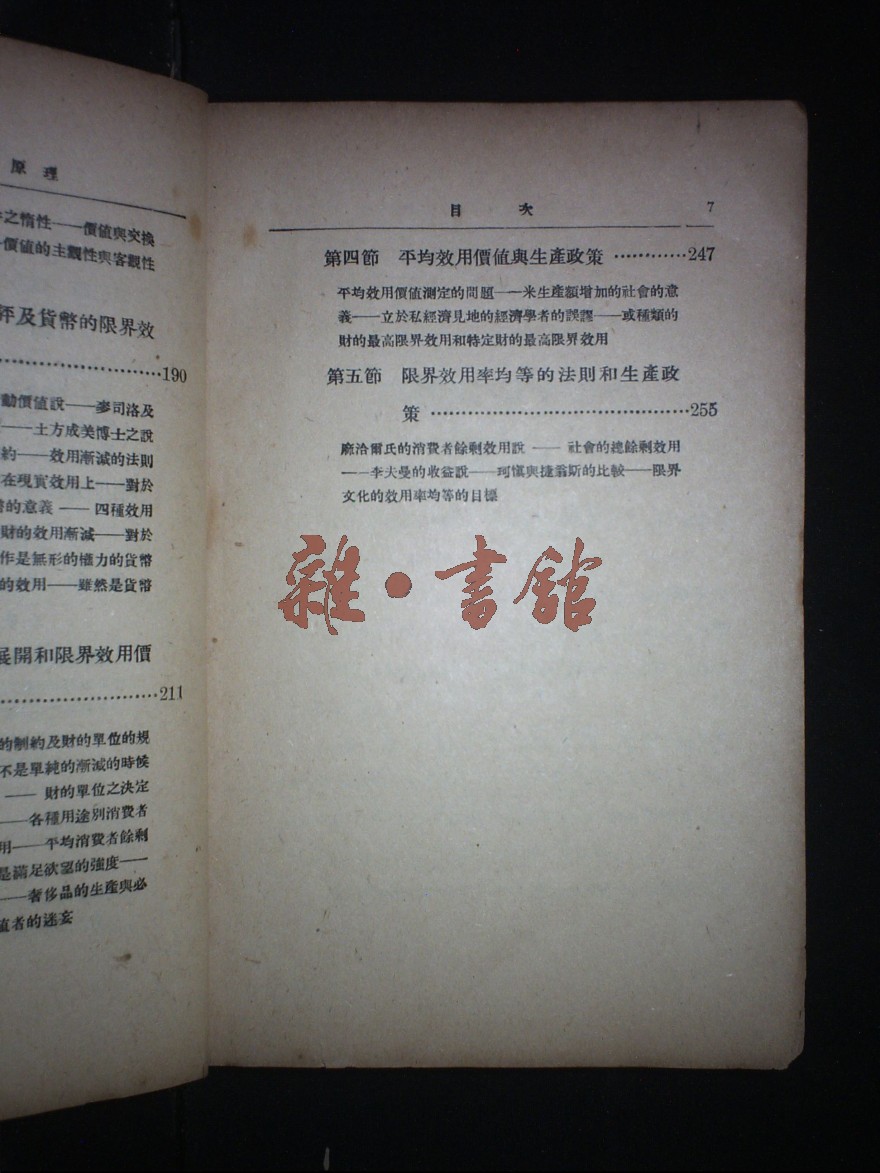 原理
之惰性——價値與交換
價値的主觀性與客觀性
評及貨幣的限界效
190
動價値說——麥司洛及
——土方成美博士之說
約——效用漸減的法則
在現實效用上——對於
的意義——四種效用
財的效用漸減——對於
作是無形的權力的貨幣
的效用——雖然是貨幣
展開和限界效用價
211
的制約及財的單位的規
不是單純的漸減的時候
——財的單位之決定
——各種用途別消費者
用——平均消費者餘剩
是滿足欲望的強度——
——奢侈品的生產與必
値者的迷妄
目次 7
第四節 平均效用價値與生產政策…………247
平均效用價値測定的問題——米生產額增加的社會的意
義——立於私經濟見地的經濟學者的誤謬——或種類的
財的最高限界效用和特定財的最高限界效用
第五節 限界效用率均等的法則和生產政
策……………………………………255
麽洽爾氏的消費者餘剩效用說——社會的總餘剩效用
——李夫曼的收益說——珂愼與捷翁斯的比較——限界
文化的效用率均等的目標
雜·書館